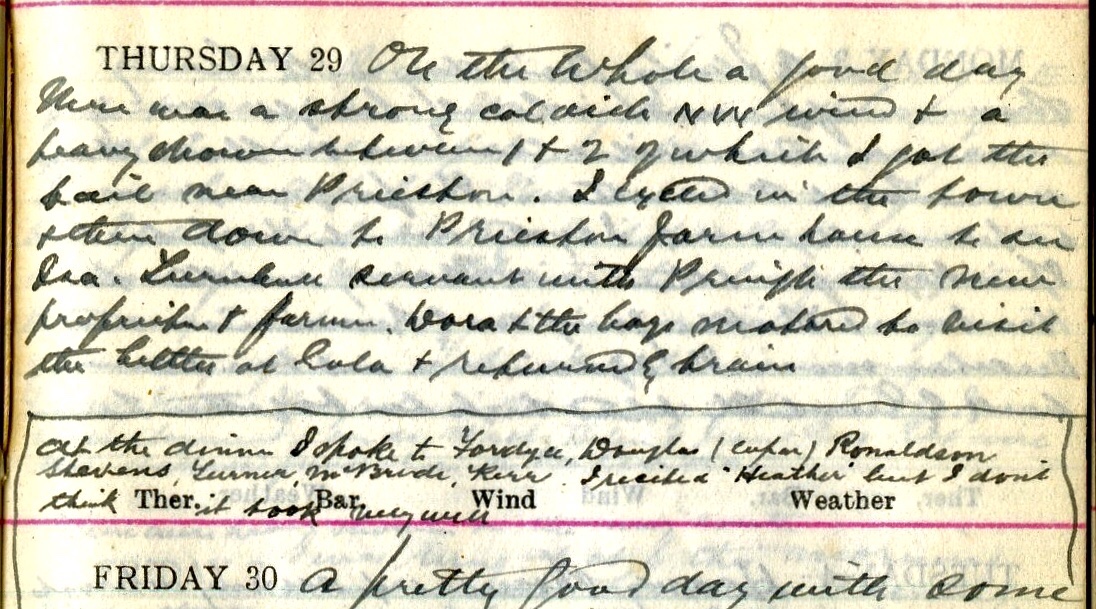 THURSDAY 29 On the whole a good day
There was a strong coldish NW wind & a
heavy shower between 1 & 2 of which I got the
tail near Prieston. I cycled in the town
& then down to Prieston farm house to see
Isa. Turnbull servant with Pringle the new
proprietor & farmer. Dora & the boys motored to visit
the at & returned by train
At the dinner I spoke to Fordyce, Douglas (Cupar) Ronaldson
Stevens, Turner, McBride, Kerr. I recited 'Heather' but I don't
think it took very well
Ther. Bar. Wind Weather
FRIDAY 30 A pretty good day with some